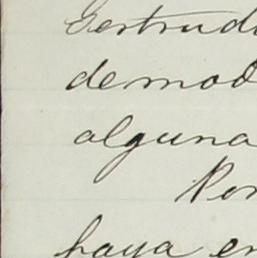 Gertrudi
demod
alguna
Por
haya en